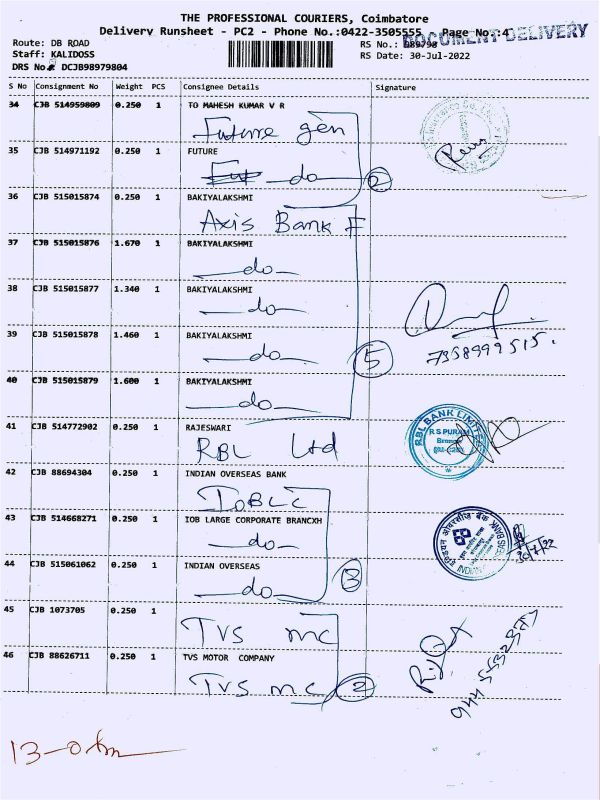 THE PROFESSIONAL COURIERS, Coimbatore
Delivery Runsheet - PC2 - Phone No.:0422-3505555 Page No.:4
DOCUMENT DELIVERY
Route: DB ROAD
RS No.:
Staff: KALIDOSS
RS Date: 30-Jul-2022
DRS No.: DCJB98979804
S No Consignment No Weight PCS Consignee Details Signature
34 CJB 514959809 0.250 1 TO MAHESH KUMAR V R
Future gen
35 CJB 514971192 0.250 1 FUTURE
do
2
36 CJB 515015874 0.250 1 BAKIYALAKSHMI
Axis Bank F
37 CJB 515015876 1.670 1 BAKIYALAKSHMI
do
38 CJB 515015877 1.340 1 BAKIYALAKSHMI
do
39 CJB 515015878 1.460 1 BAKIYALAKSHMI
do
5
7358999515.
40 CJB 515015879 1.600 1 BAKIYALAKSHMI
do
41 CJB 514772902 0.250 1 RAJESWARI
RBL Ltd
RBL BANK LIMITED
R S PURAM
Branch
42 CJB 88694304 0.250 1 INDIAN OVERSEAS BANK
IOBLC
43 CJB 514668271 0.250 1 IOB LARGE CORPORATE BRANCXH
do
इण्डियन ओवरसीज़ बैंक
30/7/22
44 CJB 515061062 0.250 1 INDIAN OVERSEAS
do
3
45 CJB 1073705 0.250 1
TVS mc
46 CJB 88626711 0.250 1 TVS MOTOR COMPANY
TVS mc
2